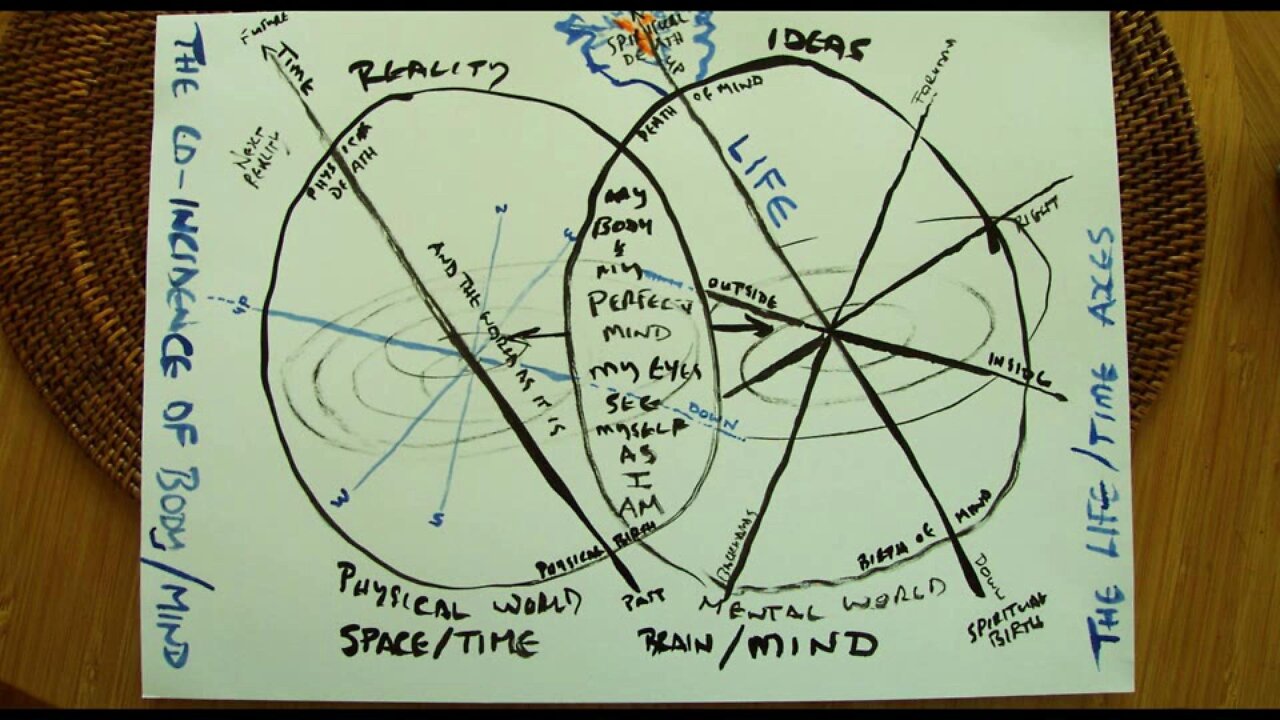 THE CO-INCIDENCE OF BODY/MIND
FUTURE
TIME
REALITY
SPIRITUAL
DEATH
UP
IDEAS
OF MIND
DEATH
FORWARD
NEXT
REALITY
PHYSICAL
DEATH
LIFE
RIGHT
N
E
UP
AND THE WORLD AS IT IS
MY
BODY
&
MY
PERFECT
MIND
MY EYES
SEE
MYSELF
AS
I
AM
OUTSIDE
INSIDE
DOWN
W
S
PHYSICAL BIRTH
PAST
BACKWARDS
BIRTH OF MIND
DOWN
SPIRITUAL
BIRTH
PHYSICAL WORLD
SPACE/TIME
MENTAL WORLD
BRAIN/MIND
THE LIFE/TIME AXES